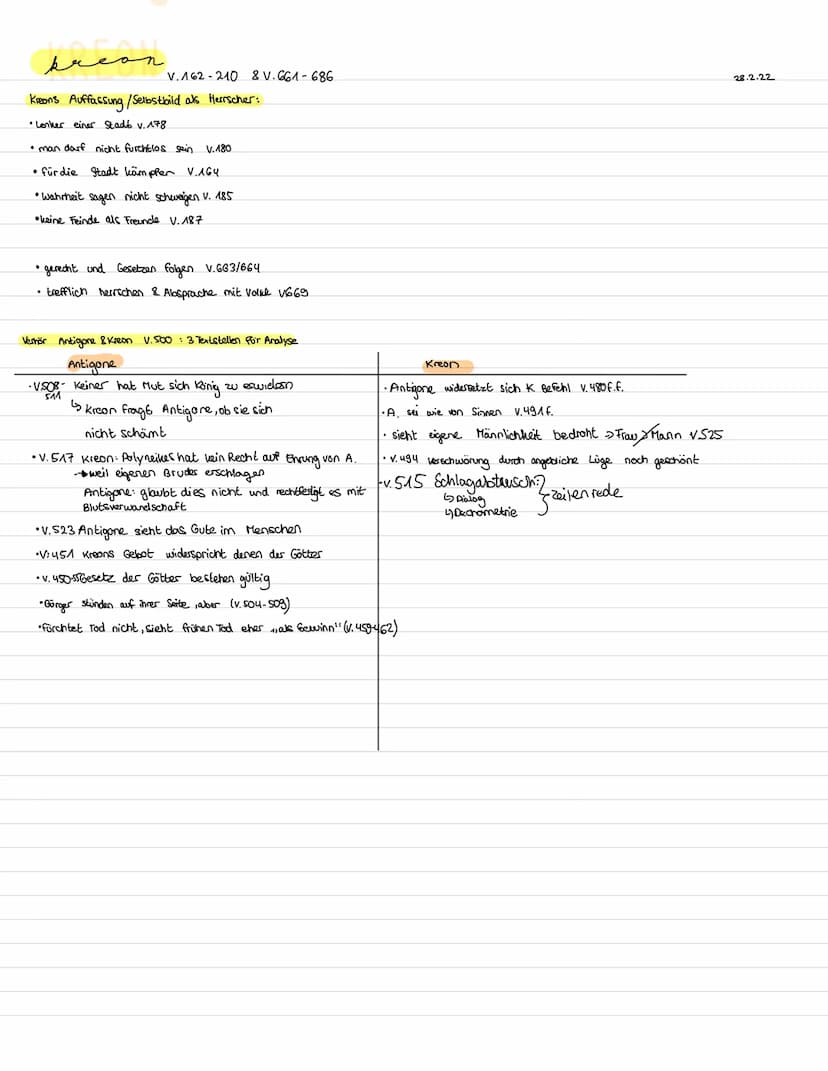 Kreon
V.162-210 & V.661-686
28.2.22
Kreons Auffassung/Selbstbild als Herrscher:
• Lenker einer Stadt V.178
• man darf nicht furchtlos sein V.180
• für die Stadt kämpfen V.164
• Wahrheit sagen nicht schweigen V. 185
• keine Feinde als Freunde V.187
• gerecht und Gesetzen folgen V.663/664
• trefflich herrschen & Absprache mit Volk V669
Verhör Antigone & Kreon V.500 : 3 Textstellen für Analyse
Antigone
• V.508- Keiner hat Mut sich König zu erwidern
511
↳ Kreon fragt Antigone, ob sie sich
nicht schämt
• V.517 Kreon: Polyneikes hat kein Recht auf Ehrung von A.
→ weil eigenen Bruder erschlagen
Antigone: glaubt dies nicht und rechtfertigt es mit
Blutsverwandschaft
• V.523 Antigone sieht das Gute im Menschen
• V.451 Kreons Gebot widerspricht denen der Götter
• V.450-55 Gesetz der Götter bestehen gültig
• Bürger stünden auf ihrer Seite, aber (V.504-509)
• fürchtet Tod nicht, sieht frühen Tod eher „als Gewinn" (V.459-462)
Kreon
• Antigone widersetzt sich K Befehl V.480f.f.
• A. sei wie von Sinnen V.491f.
• sieht eigene Männlichkeit bedroht ⇒ Frau > Mann V525
• V.494 Verschwörung durch angebliche Lüge noch geschönt
-V.515 Schlagabtausch?
↳ Dialog
↳
} Zeilenrede